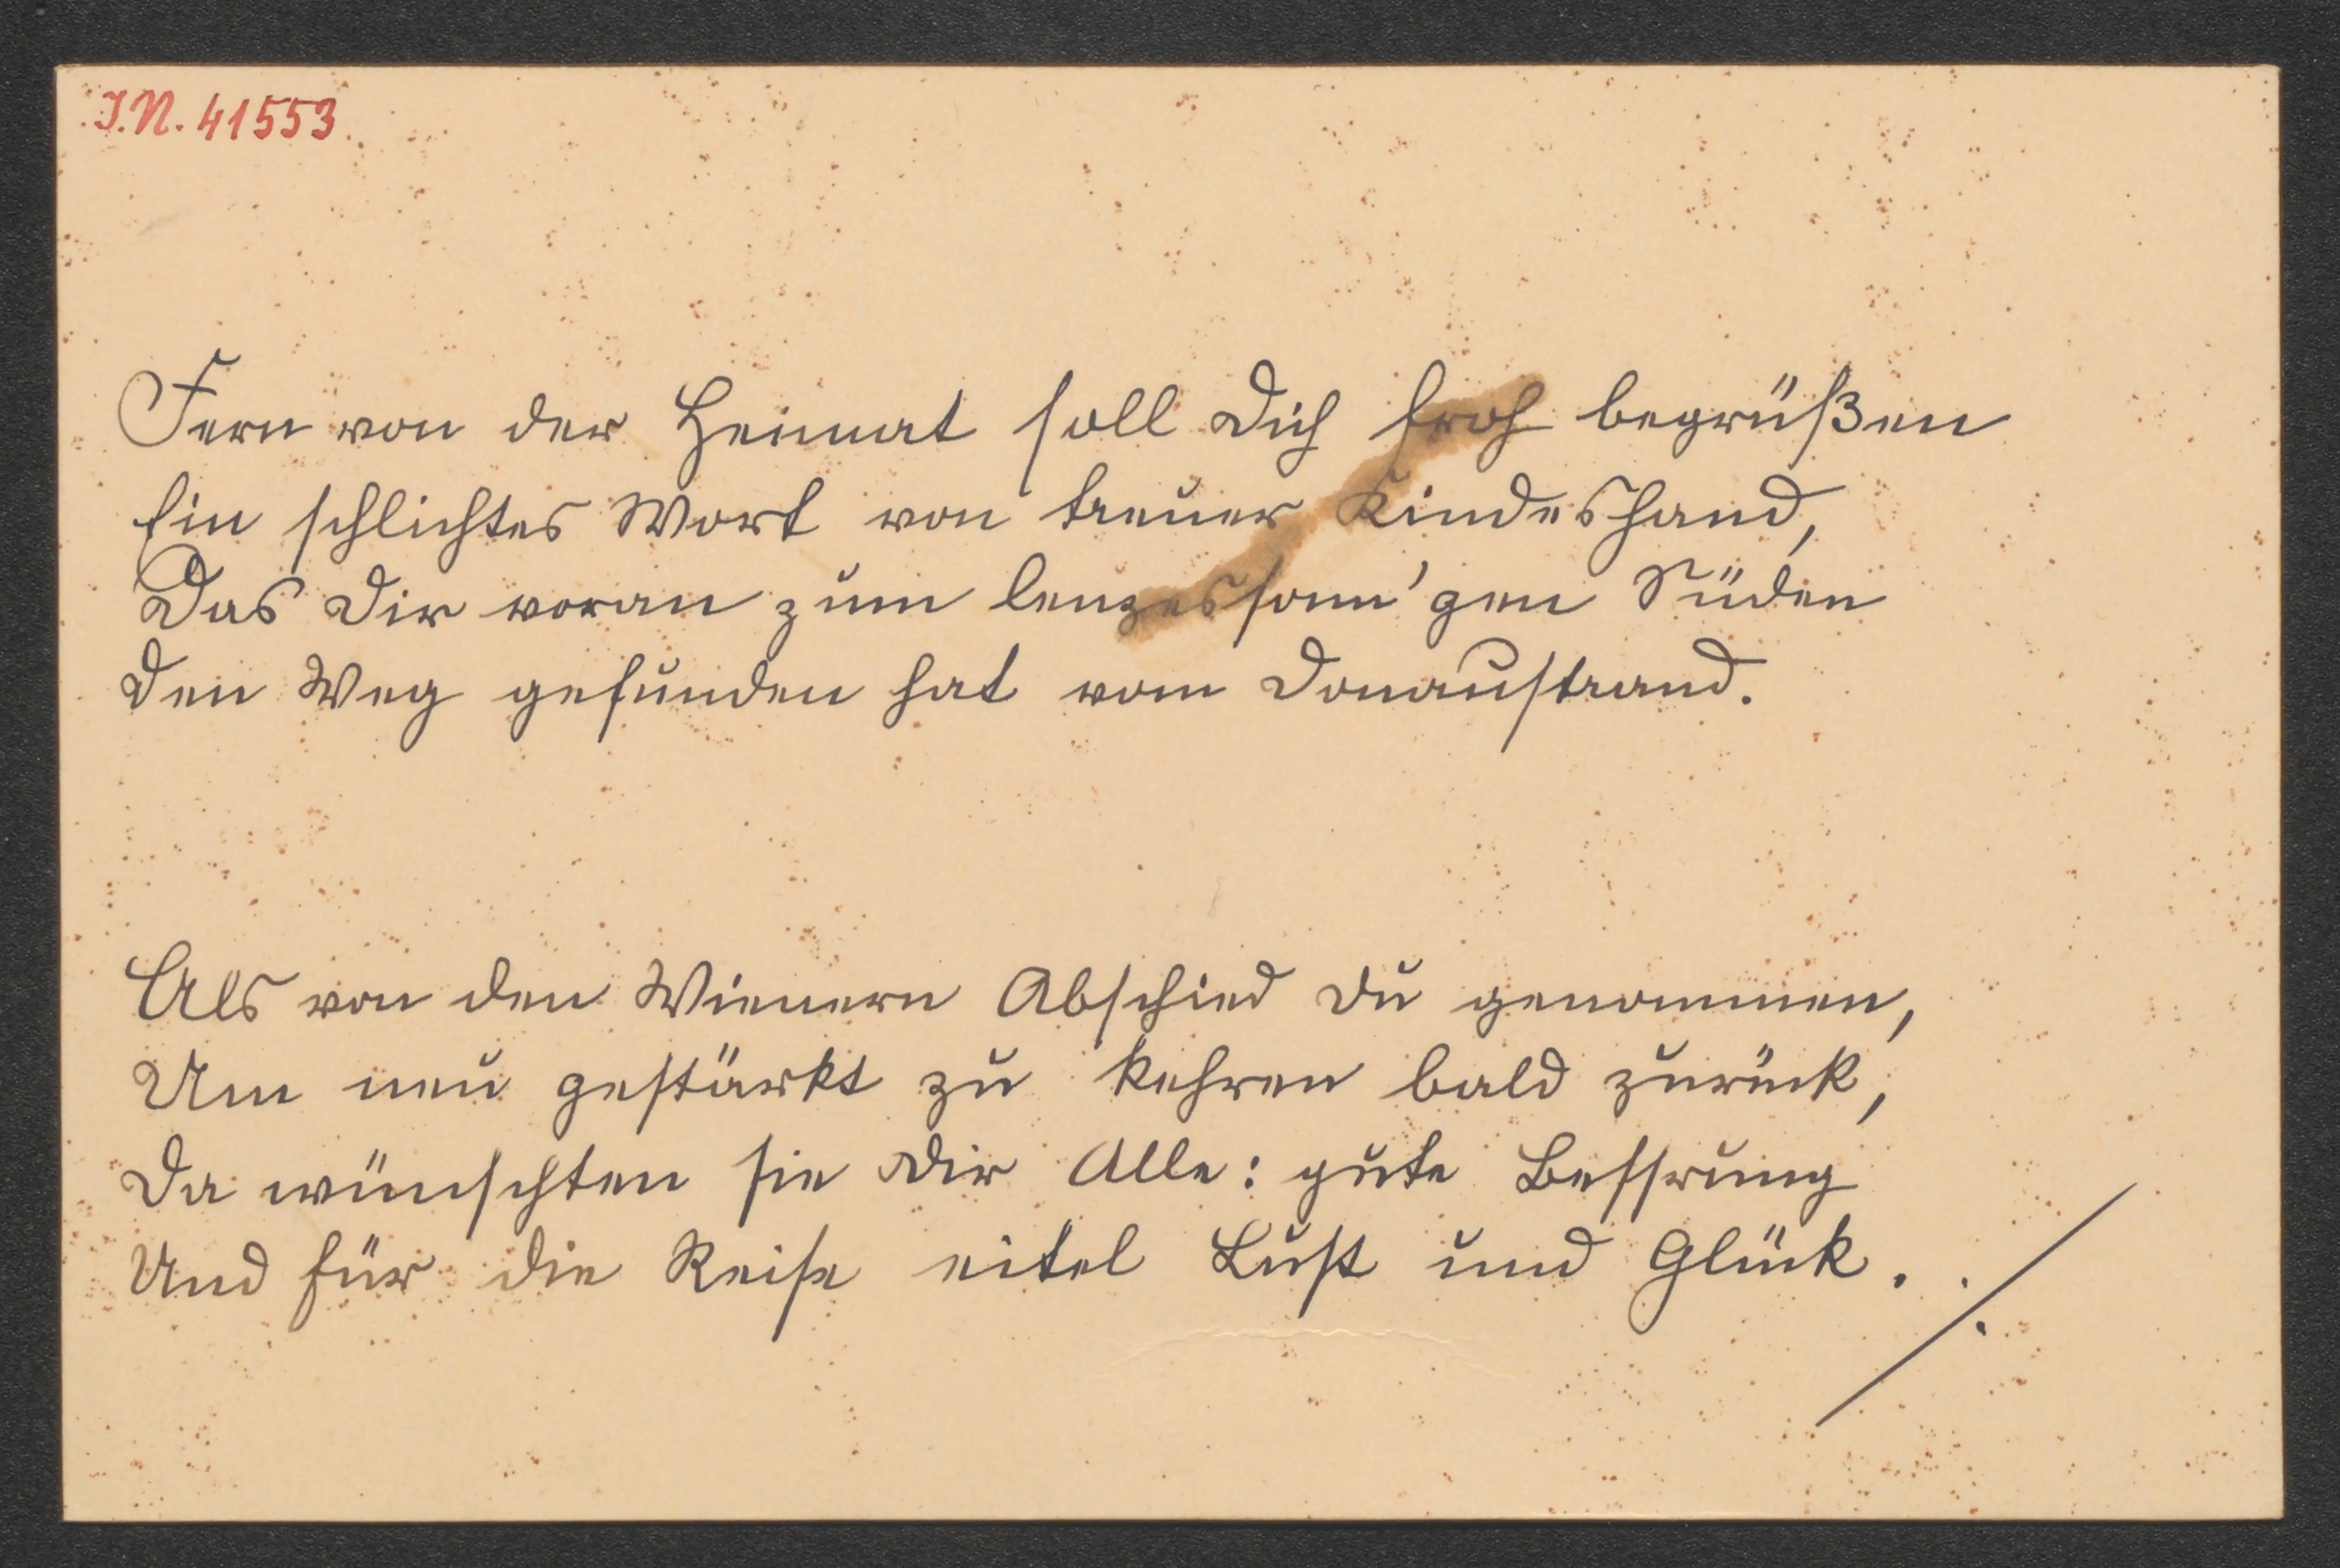 I.N. 41553
Fern von der Heimat soll Dich froh begrüßen
Ein schlichtes Wort von treuer Kindeshand,
Das Dir voran zum lenzessonn'gen Süden
Den Weg gefunden hat vom Donaustrand.
Als von den Wienern Abschied Du genommen,
Um neu gestärkt zu kehren bald zurück,
Da wünschten sie Dir Alle: gute Bessrung
Und für die Reise eitel Lust und Glück.
./.